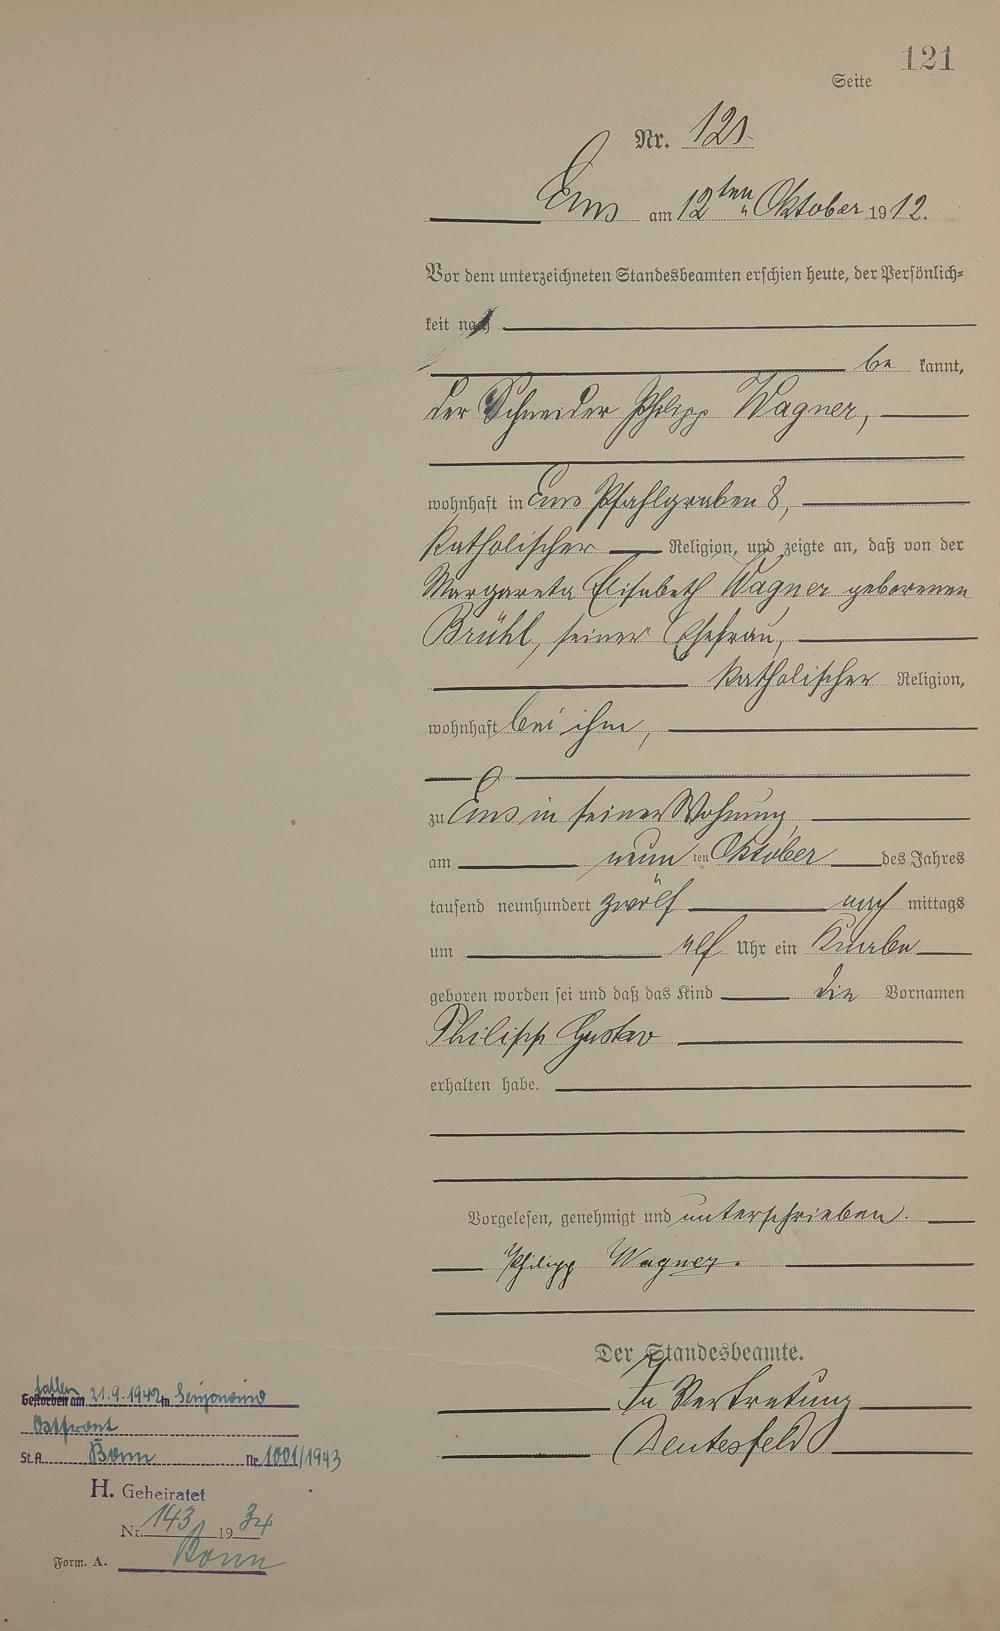 121
Seite
Nr. 121.
Ems am 12ten Oktober 1912.
Vor dem unterzeichneten Standesbeamten erschien heute, der Persönlich-
keit nach
be kannt,
der Schneider Philipp Wagner,
wohnhaft in Ems Pfahlgraben 8,
katholischer Religion, und zeigte an, daß von der
Margareta Elisabeth Wagner geborenen
Brühl, seiner Ehefrau,
katholischer Religion,
wohnhaft bei ihm,
zu Ems in seiner Wohnung
am neun ten Oktober des Jahres
tausend neunhundert zwölf nach mittags
um elf Uhr ein Knabe
geboren worden sei und daß das Kind die Vornamen
Philipp Gustav
erhalten habe.
Vorgelesen, genehmigt und unterschrieben.
Philipp Wagner.
Der Standesbeamte.
In Vertretung
Deutesfeld
fallen
Gestorben am 21.9.1942 in
Ostfront
St.A. Bonn Nr. 1001/1943
H. Geheiratet
Nr. 143 1934
Form. A. Bonn